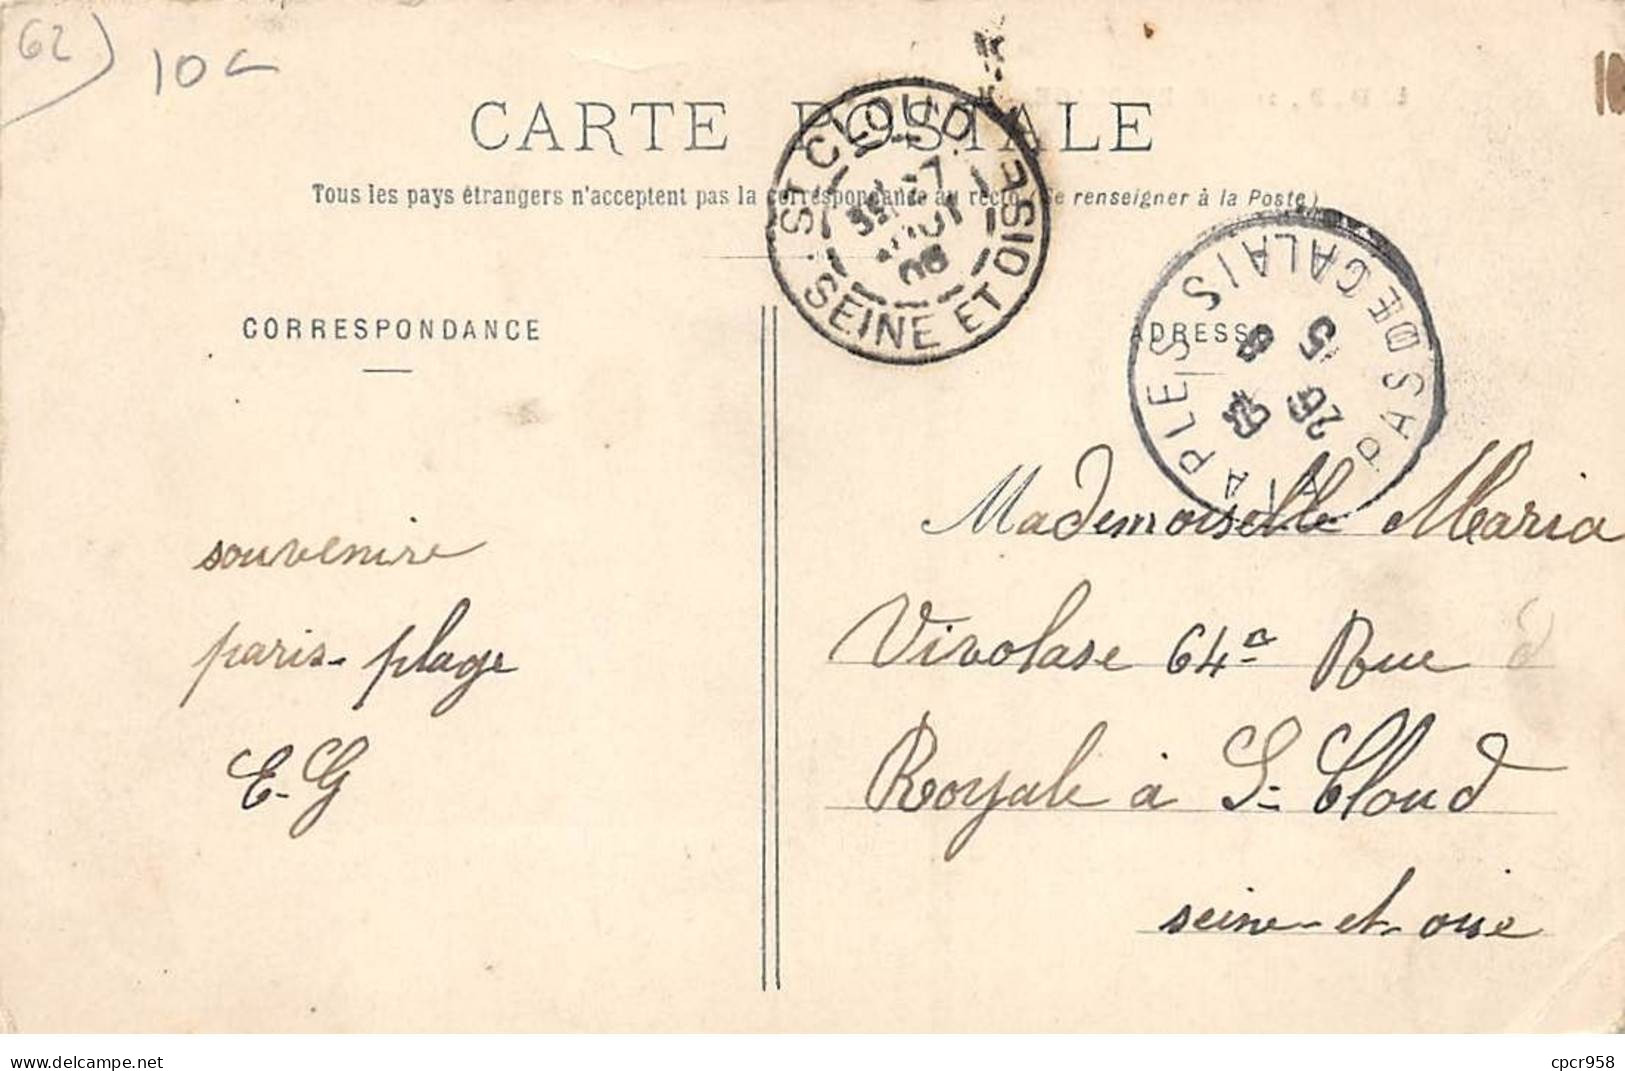 62
10c
CARTE POSTALE
Tous les pays étrangers n'acceptent pas la correspondance au recto (Se renseigner à la Poste)
ST CLOUD
SEINE ET OISE
7
AOUT
06
ETAPLES
PAS DE CALAIS
CORRESPONDANCE
ADRESSE
souvenire
paris-plage
E-G
Mademoiselle Maria
Virolase 64a Rue
Royale à St Cloud
seine-et-oise
www.delcampe.net
cpcr958